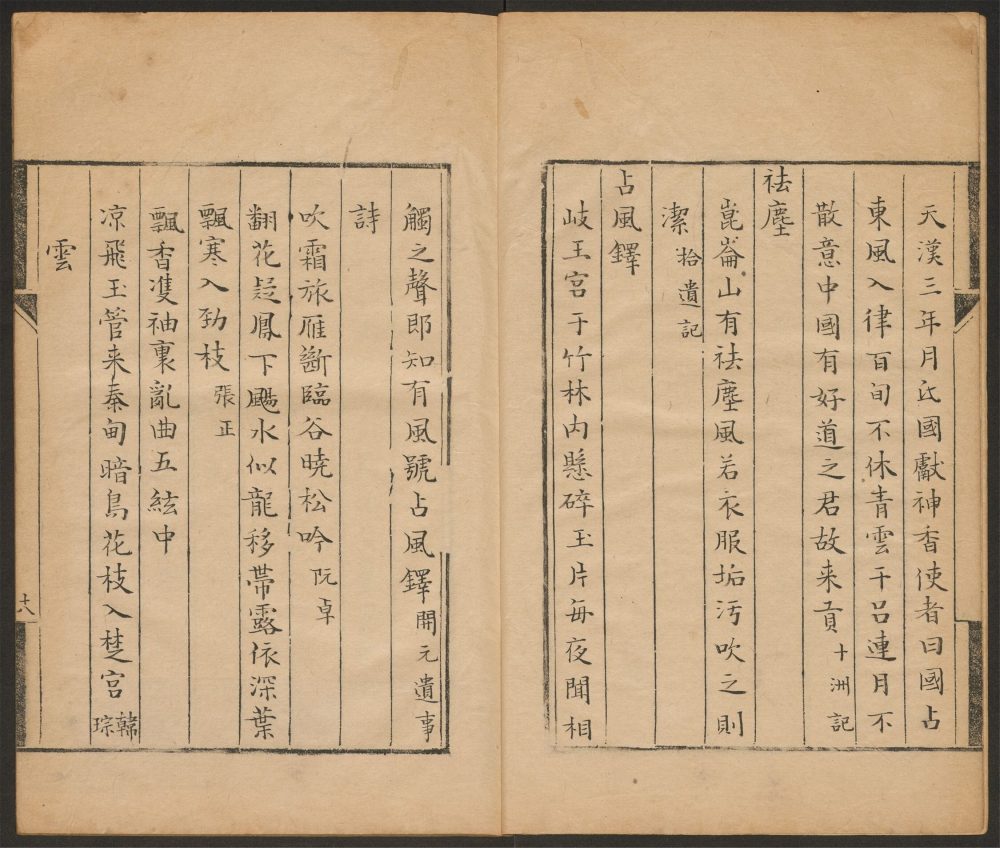 天漢三年月氏國獻神香使者曰國占
東風入律百旬不休青雲干呂連月不
散意中國有好道之君故来貢十洲記
祛塵
崑崙山有祛塵風若衣服垢污吹之則
潔拾遺記
占風鐸
岐王宮于竹林内懸碎玉片每夜聞相
觸之聲即知有風號占風鐸開元遺事
詩
吹霜旅雁斷臨谷曉松吟阮卓
翻花疑鳳下颺水似龍移帶露依深葉
飄寒入勁枝張正
飄香雙袖裏亂曲五絃中
凉飛玉管来秦甸暗鳥花枝入楚宮韓琮
雲
十八